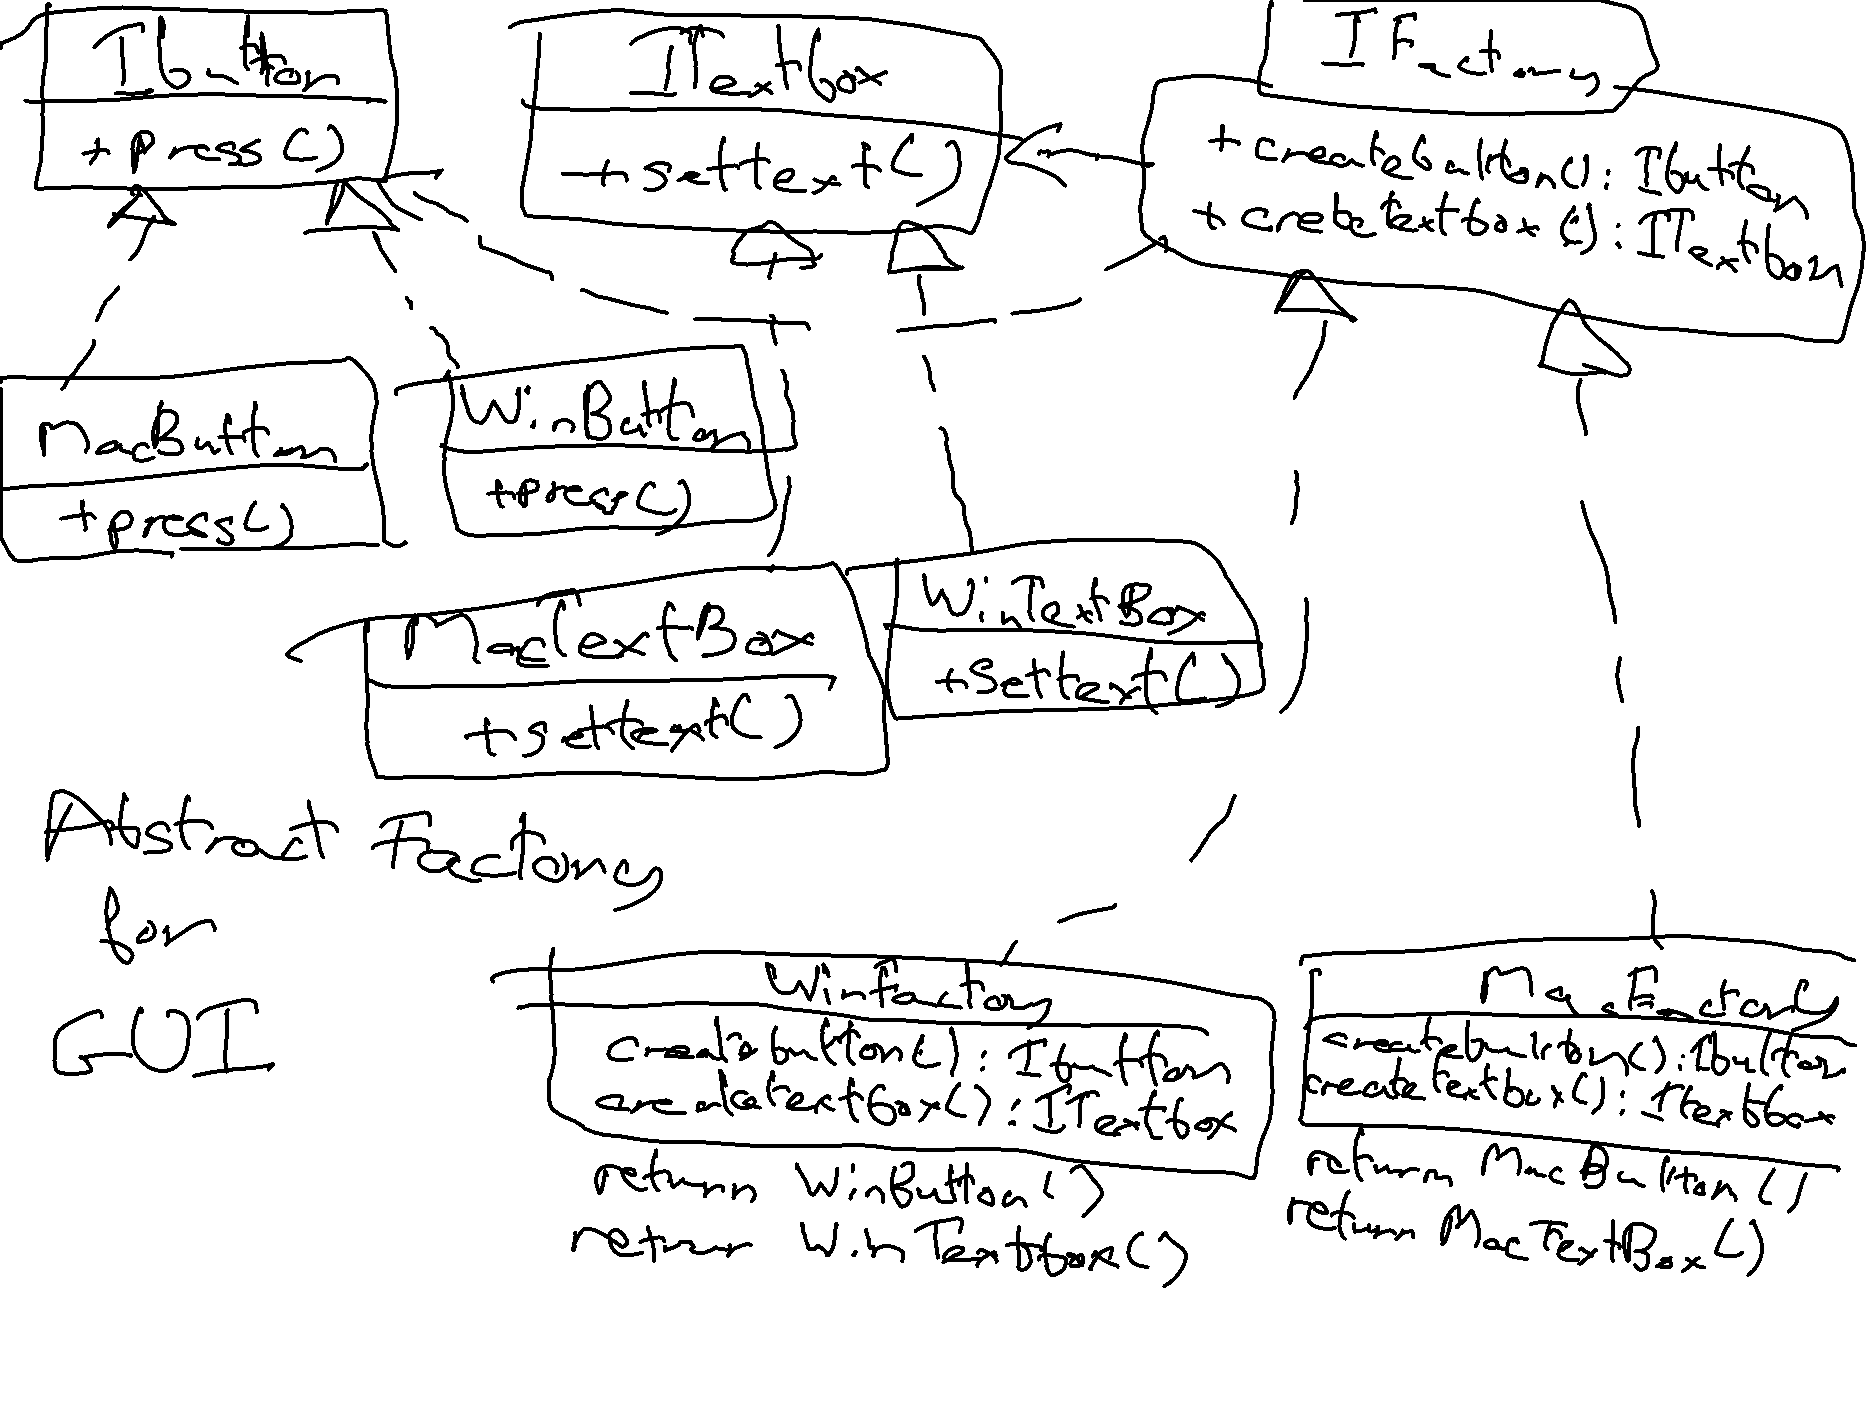 Ibutton
+ press()
ITextbox
+ settext()
IFactory
+ createbutton(): Ibutton
+ createtextbox(): ITextbox
MacButton
+ press()
WinButton
+ press()
MacTextBox
+ settext()
WinTextBox
+ Settext()
Abstract Factory
for
GUI
WinFactory
createbutton(): Ibutton
createtextbox(): ITextbox
return WinButton()
return WinTextbox()
MacFactory
createbutton(): Ibutton
createtextbox(): Itextbox
return MacButton()
return MacTextBox()